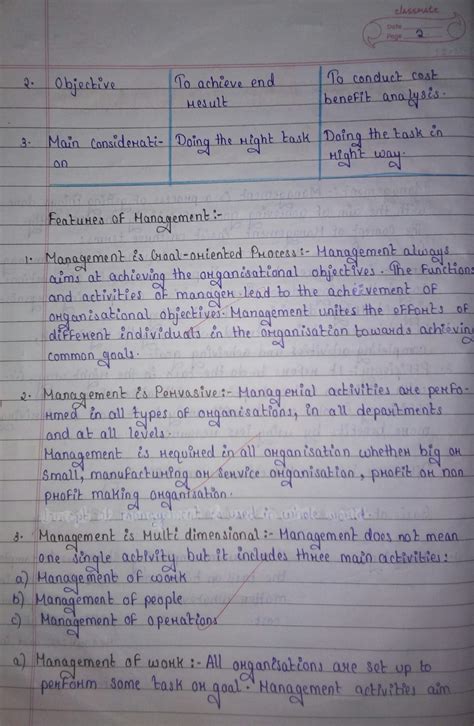 classmate
Date
Page 2
2. Objective To achieve end To conduct cost
result benefit analysis.
3. Main considerati- Doing the right task Doing the task in
on right way.
Features of Management:-
1. Management is Goal-oriented Process:- Management always
aims at achieving the organisational objectives. The functions
and activities of manager lead to the achievement of
organisational objectives. Management unites the efforts of
different individuals in the organisation towards achieving
common goals.
2. Management is Pervasive:- Managerial activities are perfo-
rmed in all types of organisations, in all departments
and at all levels.
Management is required in all organisation whether big or
small, manufacturing or service organisation, profit or non
profit making organisation.
3. Management is Multi dimensional:- Management does not mean
one single activity but it includes three main activities:
a) Management of work
b) Management of people
c) Management of operations
a) Management of work:- All organisations are set up to
perform some task or goal. Management activities aim